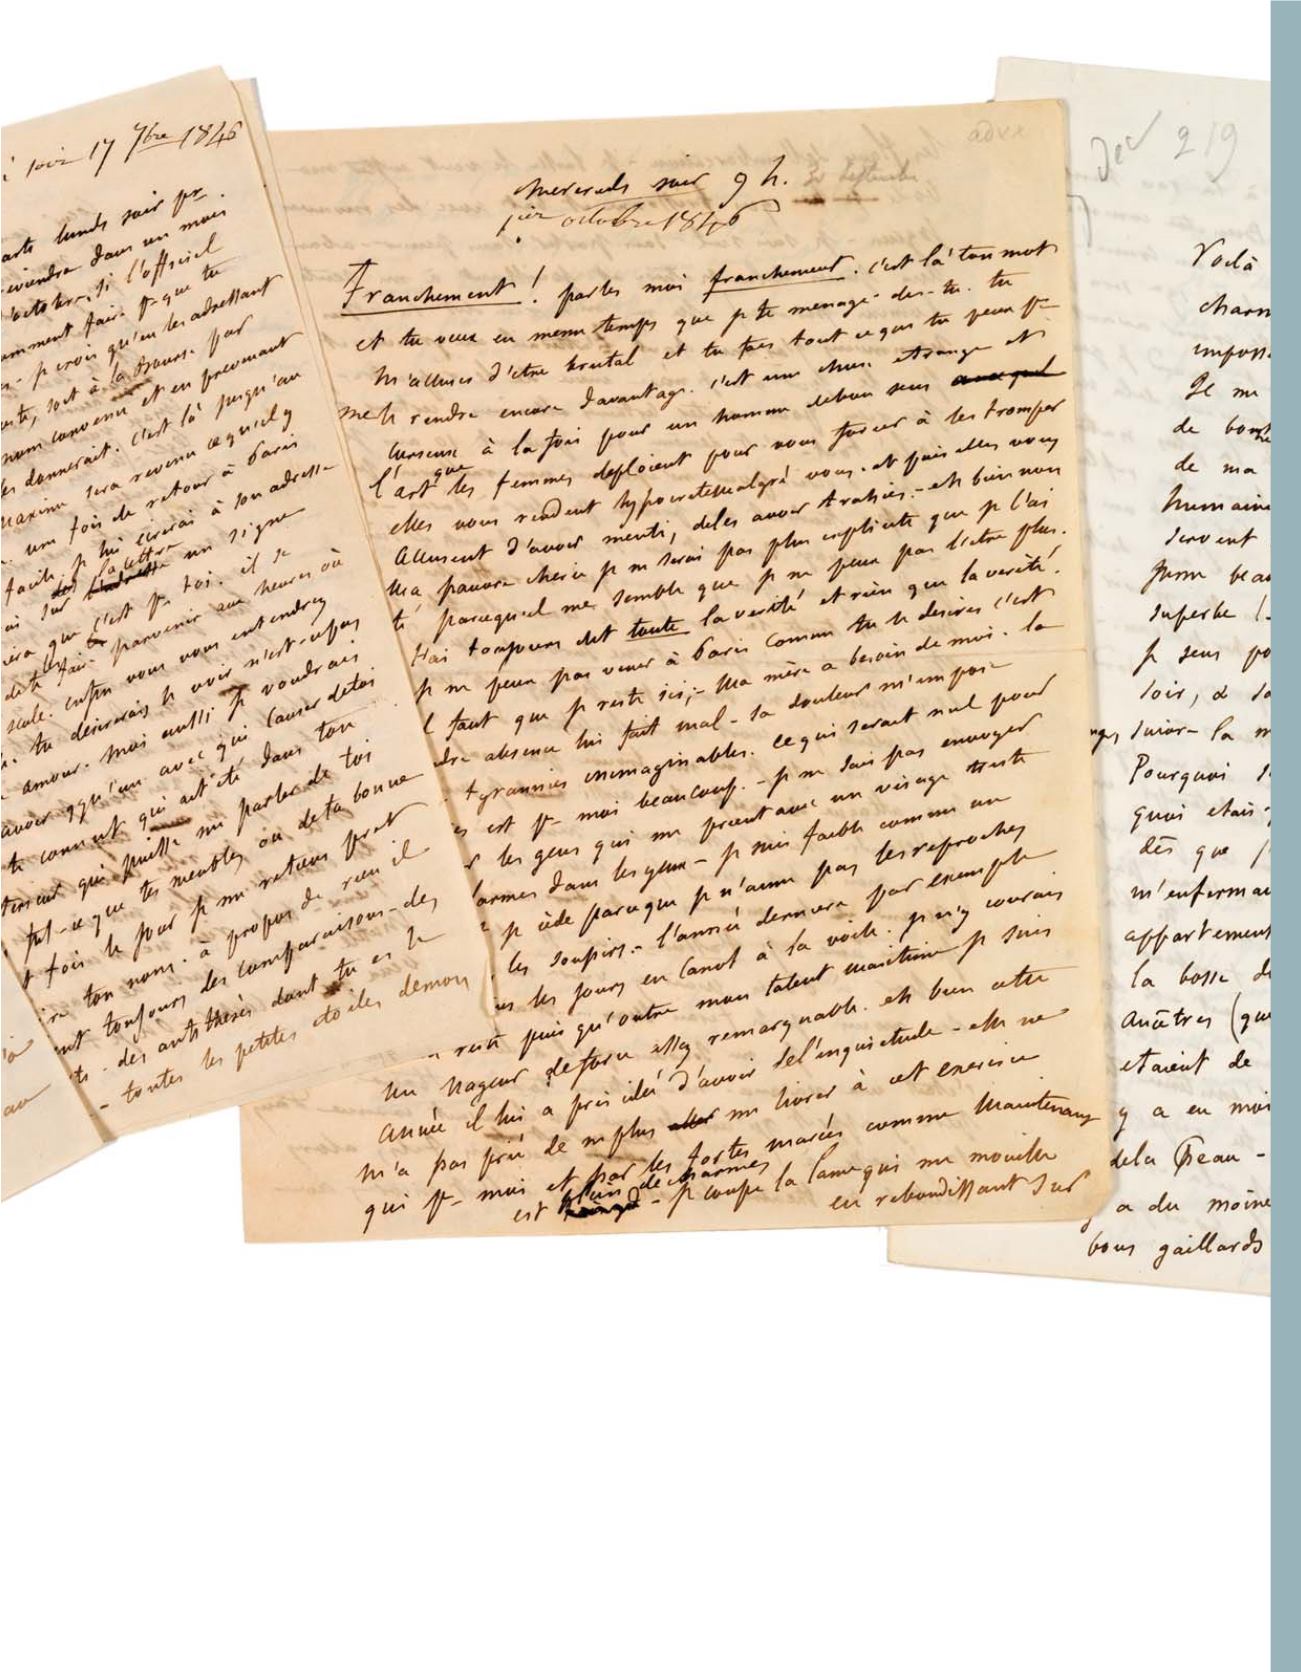 soir 17 7bre 1846
parts lundi soir pr
reviendra dans un mois
octobre. si l'officiel
comment faire pr que tu
je crois qu'en les adressant
soit à la Bourse par
nom convenu et en prevenant
les donnerait. c'est là jusqu'au
maxime sera revenu ce qu'il y
une fois de retour à Paris
facile. je lui écrirai à son adresse
sur la lettre un signe
que c'est pr toi. il se
faire parvenir aux heures où
seule. enfin vous vous entendrez
tu désirerais le voir n'est-ce pas
amour. moi aussi je voudrais
avoir qqu'un avec qui causer de toi
te connut qui ait été dans ton
interieur qui puisse me parler de toi
fut-ce que tes meubles ou de ta bonne
fois le jour je me retiens pret
dire ton nom. à propos de rien il
vient toujours des comparaisons - des
- des antithèses dont tu es le
- toutes les petites étoiles de mon
Mercredi soir 9 h.
1ier octobre 1846
Franchement! parles moi franchement. c'est là ton mot
et tu veux en meme temps que je te menage - dis-tu. tu
m'accuses d'etre brutal et tu fais tout ce que tu peux pr
me le rendre encore davantage. c'est une chose etrange et
curieuse à la fois pour un homme de bon sens
l'art que les femmes deploient pour vous forcer à les tromper
elles vous rendent hypocrite malgré vous. et puis elles vous
accusent d'avoir menti, de les avoir trahies. - eh bien non
ma pauvre cherie je ne serai pas plus explicite que je l'ai
été parcequ'il me semble que je ne peux pas l'etre plus.
t'ai toujours dit toute la verité et rien que la verité.
je ne peux pas venir à Paris comme tu le desires c'est
il faut que je reste ici, - ma mère a besoin de moi. la
dre absence lui fait mal - sa douleur m'impose
tyrannies inimaginables. ce qui serait nul pour
es est pr moi beaucoup. - je ne sais pas envoyer
les gens qui me prient avec un visage triste
larmes dans les yeux - je suis faible comme un
je cède parce que je n'aime pas les reproches
les soupirs. - l'année derniere par exemple
us les jours en canot à la voile. je n'y courais
reste puis qu'outre mon talent maritime je suis
un nageur de force assez remarquable. eh bien cette
année il lui a pris idée d'avoir de l'inquietude - elle ne
m'a pas prié de ne plus me livrer à cet exercice
qui pr moi et par les fortes marées comme maintenant
est plein de charmes - je coupe la lame qui me mouille
en rebondissant sur
Dec 219
Voilà
charm
imposs
Je me
de bon
de ma
humaine
servent
jeune beau
superbe
je sens po
soir, à
suivre la m
Pourquoi
quoi etais-
dès que
m'enfermai
appartement
la bosse d
ancêtres (que
etaient de
y a en moi
de la Peau -
a du moine
bons gaillards